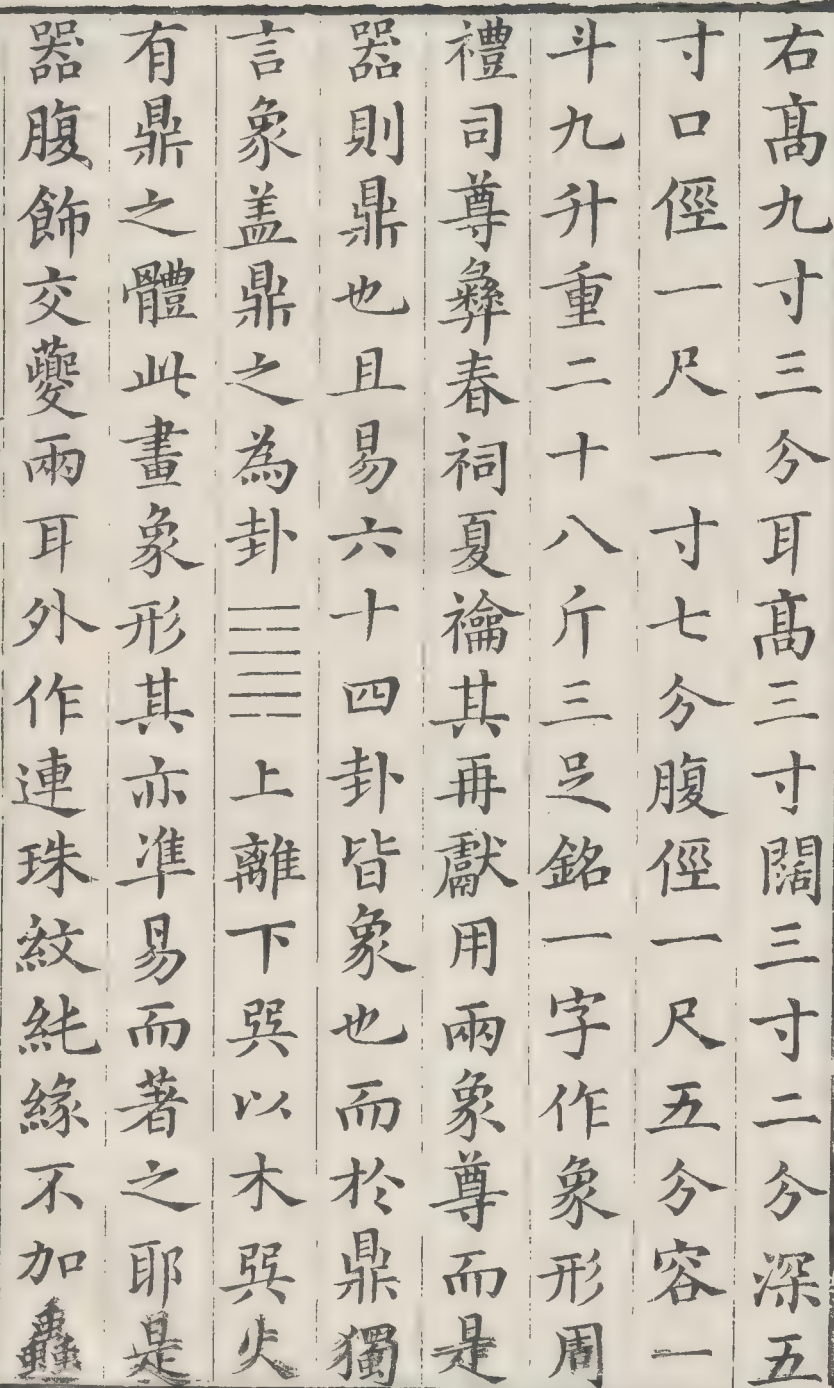 右髙九寸三分耳髙三寸闊三寸二分深五
寸口徑一尺一寸七分腹徑一尺五分容一
斗九升重二十八斤三足銘一字作象形周
禮司尊彝春祠夏禴其再獻用兩象尊而是
器則鼎也且易六十四卦皆象也而於鼎獨
言象盖鼎之為卦䷱上離下巽以木巽火
有鼎之體此畫象形其亦凖易而著之耶是
器腹飾交夔兩耳外作連珠紋純緣不加